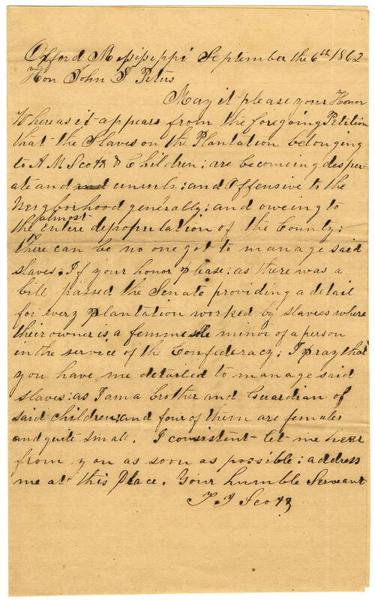 Offord Mississippi September the 6th 1862
Hon John J Petus
May it please your Honor
Whereas it appears from the foregoing Petition
that the Slaves on the Plantation belonging
to A. M. Scott & Children; are becoming desper-
ate and unruly; and Offensive to the
Neighborhood generally; and oweing to
the almost entire depopulation of the County;
there can be no one got to manage said
slaves; If your honor please; as there was a
bill passed the Senate providing a detail
for every plantation worked by slaves where
their owner is a femme sole minor of a person
in the service of the Confederacy; I pray that
you have me detailed to manage said
slaves; as I am a brother and Guardian of
said children; and four of them are females
and quite small. I consistent let me hear
from you as soon as possible; address
me at this Place. Your humble Servant
T J Scott